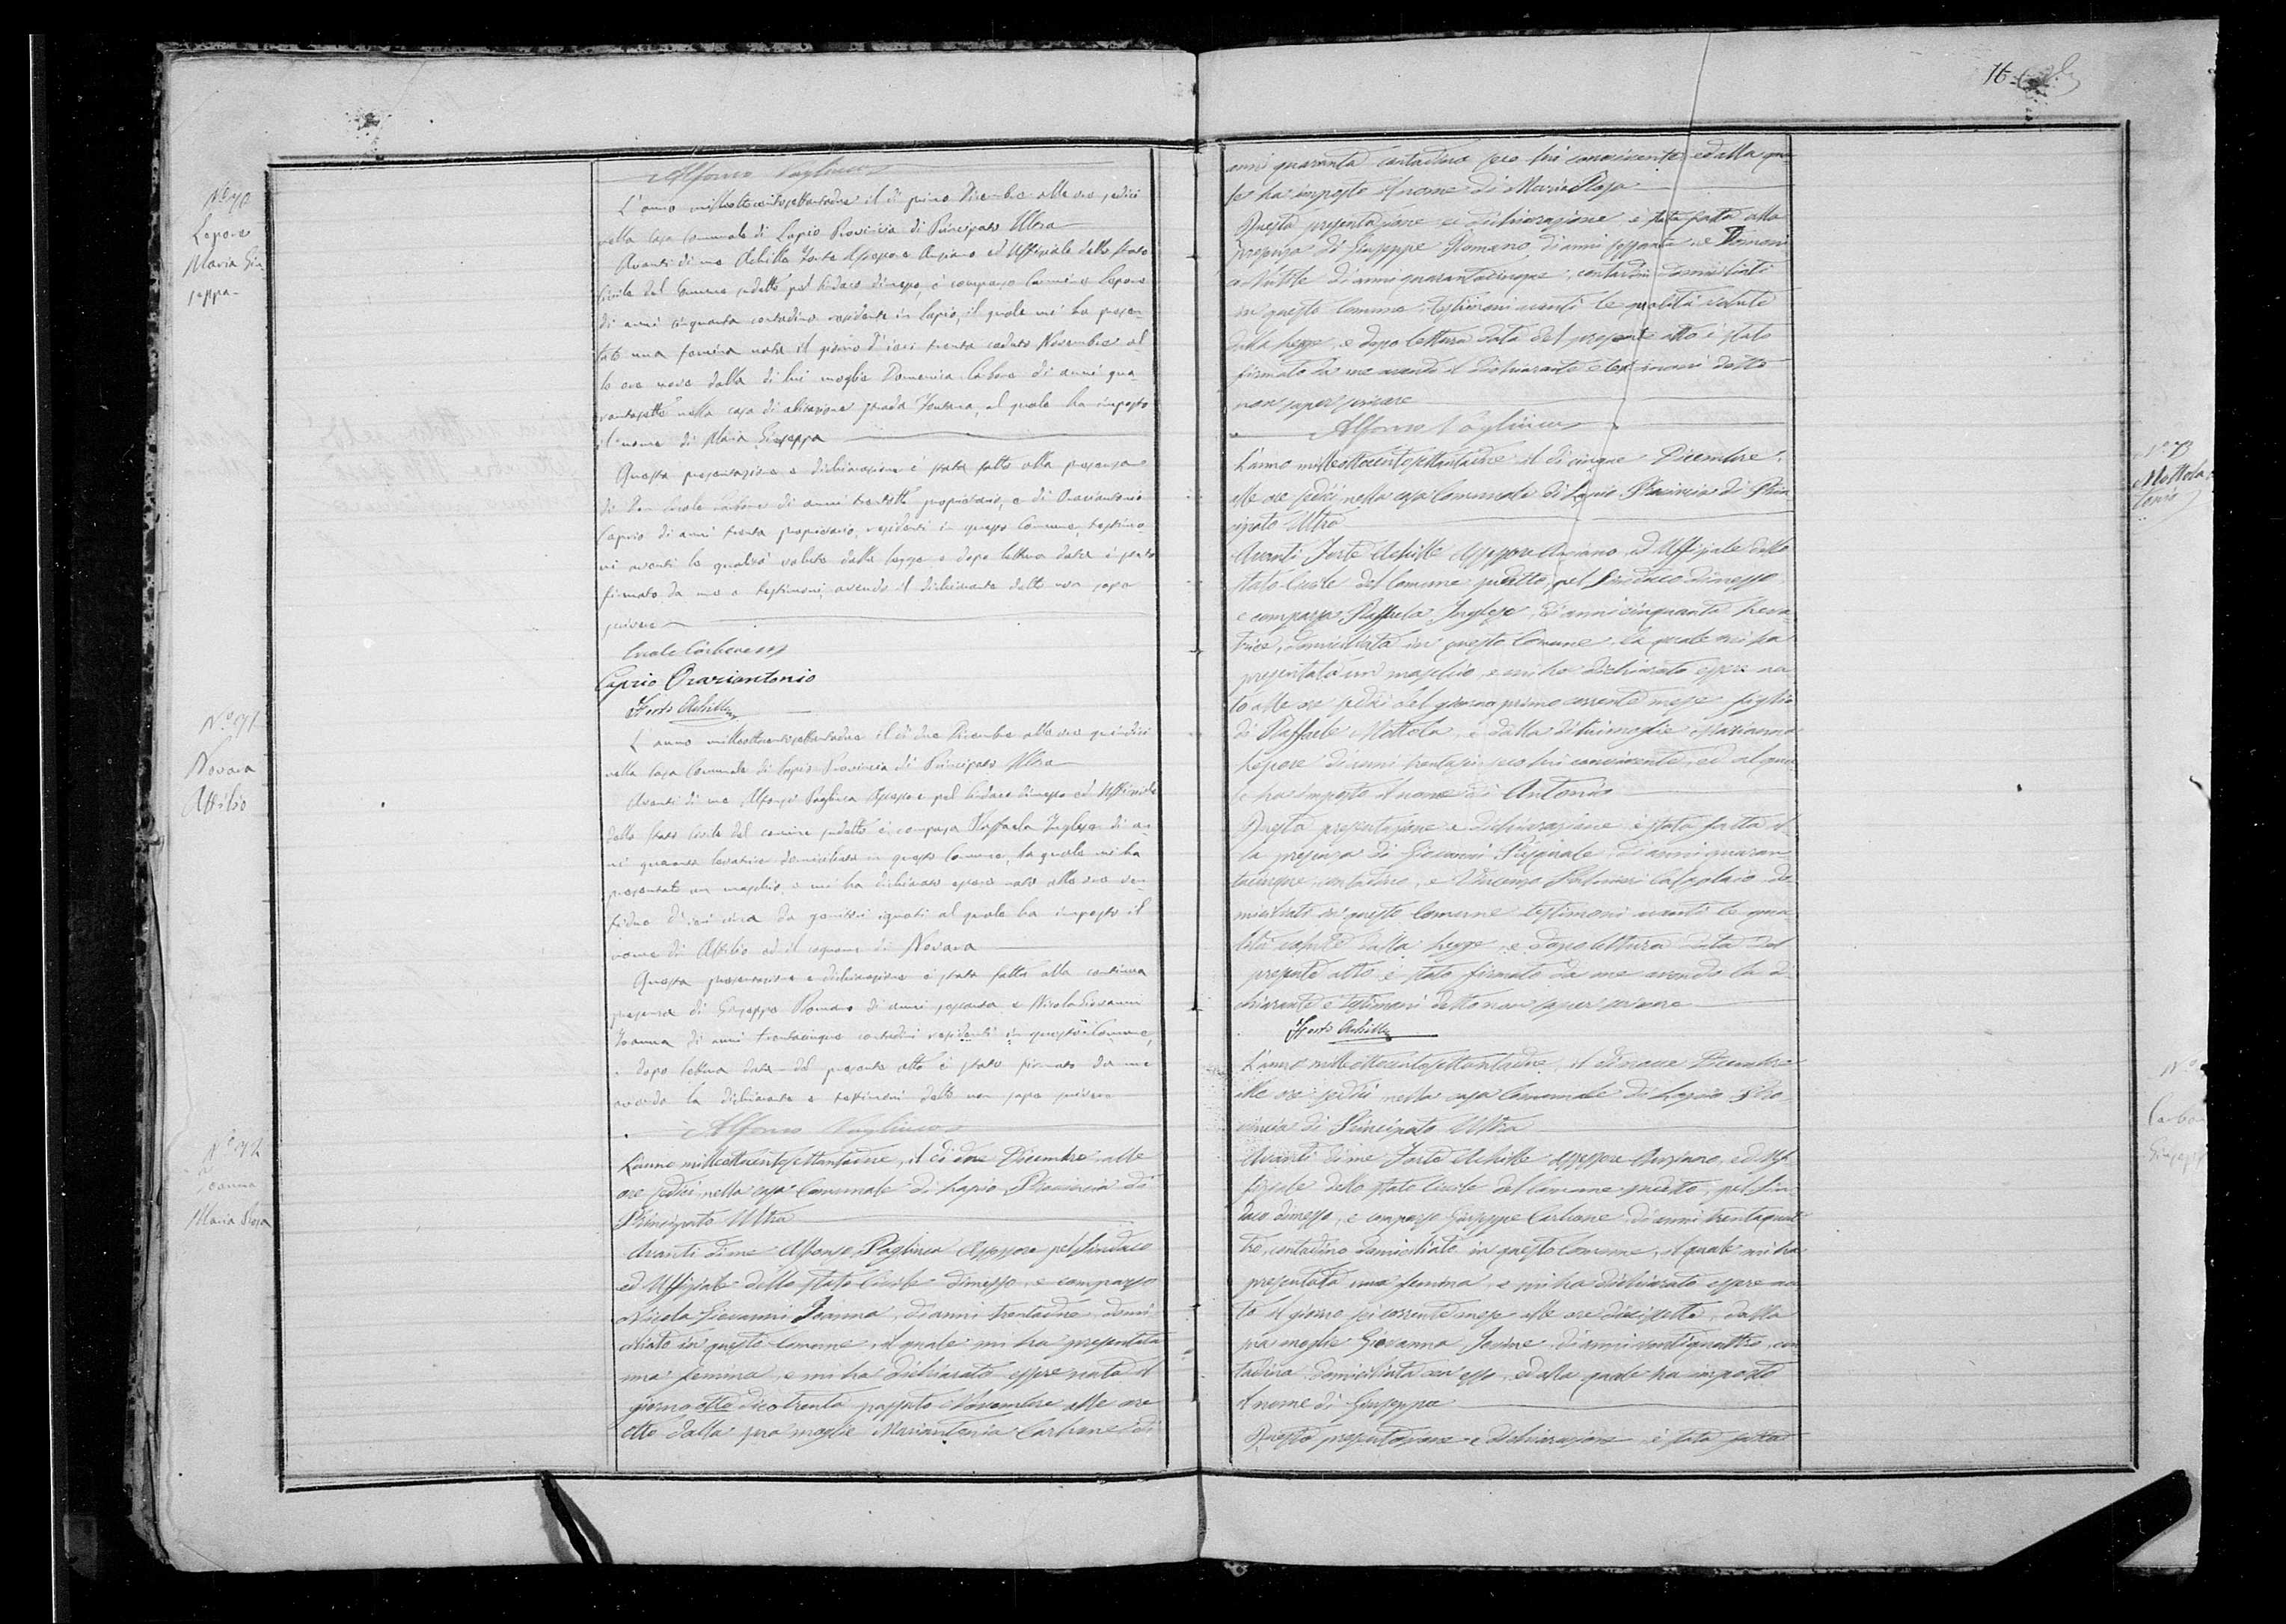 N.º 70
Lepore
Maria Giu
seppa
Alfonso Pagliuca
L'anno milleottocentosettantadue il dì primo Dicembre alle ore sedici
nella Casa Comunale di Lapio Provincia di Principato Ultra
Avanti di me Achille Forte Assessore Anziano ed Uffiziale dello stato
Civile del Comune sudetto pel Sindaco dimesso, è comparso Carmine Lepore
di anni cinquanta contadino residente in Lapio, il quale mi ha presen
tato una femina nata il giorno d'ieri trenta caduto Novembre al
le ore nove dalla di lui moglie Domenica Carbone di anni qua
rantasette nella casa di abitazione strada Fontana, al quale ha imposto
il nome di Maria Giuseppa
Questa presentazione e dichiarazione è stata fatta alla presenza
di Ercole Carbone di anni trentasette proprietario, e di Oraziantonio
Caprio di anni trenta proprietario, residenti in questo Comune, testimo
ni aventi le qualità volute dalla legge e dopo lettura data è stato
firmato da me e testimoni avendo il dichiarante detto non sape
scrivere
Ercole Carbone
Caprio Oraziantonio
Forte Achille
N.º 71
Novara
Attilio
L'anno milleottocentosettantadue il dì due Dicembre alle ore quindici
nella Casa Comunale di Lapio Provincia di Principato Ultra
Avanti di me Alfonso Pagliuca Assessore pel Sindaco dimesso ed Uffiziale
dello Stato Civile del comune sudetto è comparsa Raffaela Inglese di an
ni levatrice domiciliata in questo Comune, la quale mi ha
presentato un maschio, e mi ha dichiarato essere nato alle ore ven
tidue d'ieri da genitori ignoti al quale ha imposto il
nome di Attilio ed il cognome di Novara
Questa presentazione e dichiarazione è stata fatta alla continua
presenza di Giuseppe Romano di anni sessanta e Nicola Giovanni
Ioanna di anni trentacinque contadini residenti in questo Comune,
e dopo lettura data del presente atto è stato firmato da me
avendo la dichiarante e testimoni detto non sape scrivere
Alfonso Pagliuca
N.º 72
Ioanna
Maria Rosa
L'anno milleottocentosettantadue, il dì due Dicembre alle
ore sedici nella casa Comunale di Lapio Provincia di
Principato Ultra
Avanti di me Alfonso Pagliuca Assessore pel Sindaco
ed Uffiziale dello stato Civile dimesso, e comparso
Nicola Giovanni Ioanna, di anni trentadue, domi
ciliato in questo Comune, il quale mi ha presentata
una femina, e mi ha dichiarato essere nata il
giorno otto dico trenta passato Novembre alle ore
otto dalla sua moglie Mariantonia Carbone di
16
anni quaranta contadina seco lui convivente, ed alla qua
le ha imposto il nome di Maria Rosa
Questa presentazione e dichiarazione è stata fatta alla
presenza di Giuseppe Romano, di anni sessanta e Domeni
co di anni quarantacinque, contadini domiciliati
in questo Comune testimoni aventi le qualità volute
dalla legge, e dopo lettura data del presente atto è stato
firmato da me avendo il dichiarante e testimoni detto
non saper scrivere
Alfonso Pagliuca
N.º 73
Mottola
tonio
L'anno milleottocentosettantadue il dì cinque Dicembre
alle ore sedici nella casa Comunale di Lapio Provincia di Prin
cipato Ultra
Avanti Forte Achille Assessore Anziano, ed Uffiziale dello
stato Civile del Comune sudetto, pel Sindaco dimesso
e comparsa Raffaela Inglese, di anni cinquanta leva
trice, domiciliata in questo Comune, la quale mi ha
presentato un maschio, e mi ha dichiarato essere na
to alle ore sedici del giorno primo corrente mese figlio
di Raffaele Mottola, e dalla di lui moglie Marianna
Lepore di anni trentasei seco lui convivente, ed al qua
le ha imposto il nome di Antonio
Questa presentazione e dichiarazione è stata fatta al
la presenza di Giovanni Pasquale, di anni quaran
tacinque, contadino, e Vincenzo Palmieri Calzolaio do
miciliati in questo Comune testimoni aventi le qua
lità volute dalla legge, e dopo lettura data del
presente atto è stato firmato da me avendo la di
chiarante e testimoni detto non saper scrivere
Forte Achille
N.º
Carbo
Giusepp
L'anno milleottocentosettantadue, il dì nove Dicembre
alle ore sedici nella casa Comunale di Lapio Pro
vincia di Principato Ultra
Avanti di me Forte Achille Assessore Anziano, ed Uf
fiziale dello stato Civile del Comune sudetto, pel Sin
daco dimesso, e comparso Giuseppe Carbone di anni trentaquat
tro, contadino domiciliato in questo Comune, il quale mi ha
presentata una femina, e mi ha dichiarato essere na
ta il giorno sei corrente mese alle ore diecisette, dalla
sua moglie Giovanna Iovine, di anni ventiquattro, con
tadina domiciliata con esso, ed alla quale ha imposto
il nome di Giuseppa
Questa presentazione e dichiarazione è stata fatta